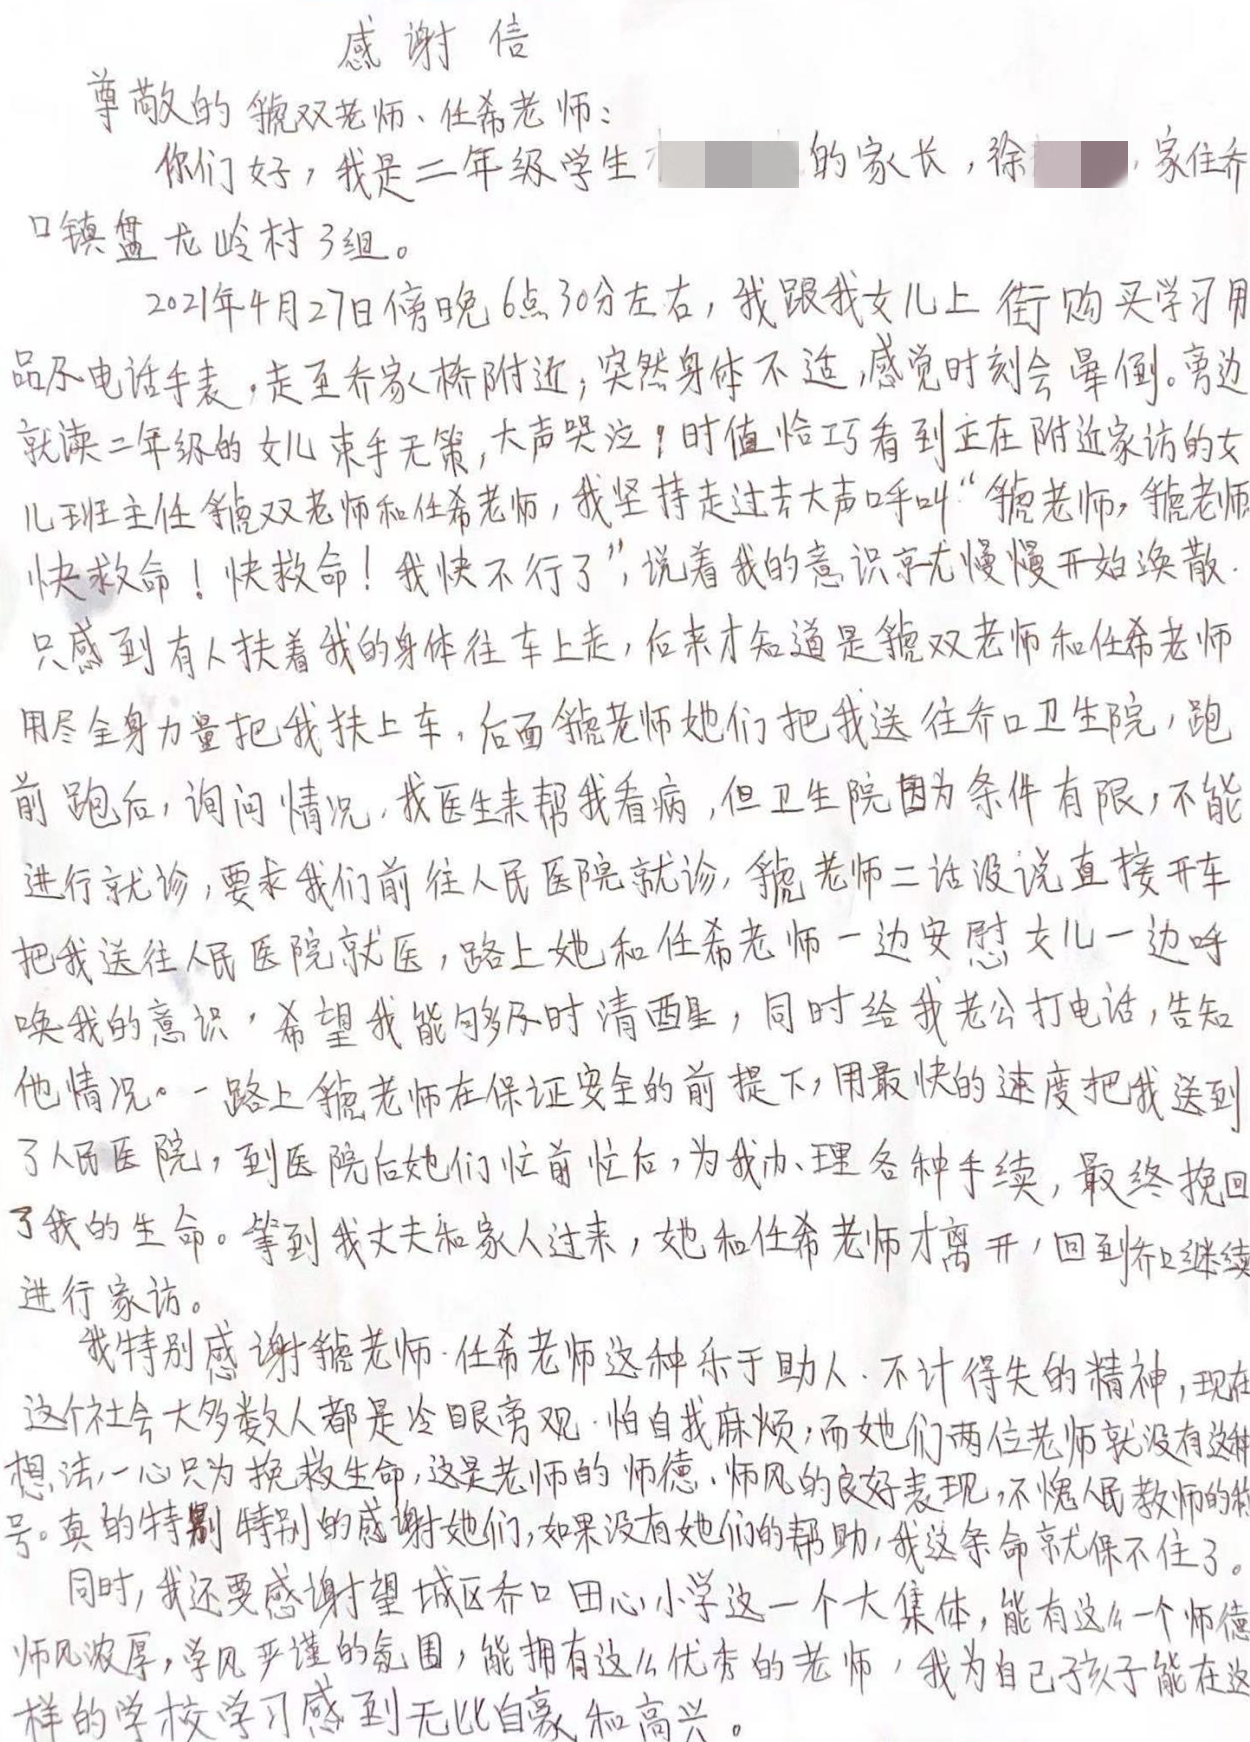 感谢信
尊敬的虢双老师、任希老师:
你们好，我是二年级学生 的家长，徐 ，家住乔
口镇盘龙岭村3组。
2021年4月27日傍晚6点30分左右，我跟我女儿上街购买学习用
品及电话手表，走至乔家桥附近，突然身体不适，感觉时刻会晕倒。旁边
就读二年级的女儿束手无策，大声哭泣，时值恰巧看到正在附近家访的女
儿班主任虢双老师和任希老师，我坚持走过去大声呼叫“虢老师，虢老师
快救命！快救命！我快不行了”，说着我的意识就慢慢开始涣散.
只感到有人扶着我的身体往车上走，后来才知道是虢双老师和任希老师
用尽全身力量把我扶上车，后面虢老师她们把我送往乔口卫生院，跑
前跑后，询问情况，找医生来帮我看病，但卫生院因为条件有限，不能
进行就诊，要求我们前往人民医院就诊，虢老师二话没说直接开车
把我送往人民医院就医，路上她和任希老师一边安慰女儿一边呼
唤我的意识，希望我能够及时清醒，同时给我老公打电话，告知
他情况。一路上虢老师在保证安全的前提下，用最快的速度把我送到
了人民医院，到医院后她们忙前忙后，为我办理各种手续，最终挽回
了我的生命。等到我丈夫和家人过来，她和任希老师才离开，回到乔口继续
进行家访。
我特别感谢虢老师、任希老师这种乐于助人、不计得失的精神，现在
这个社会大多数人都是冷眼旁观、怕自我麻烦，而她们两位老师就没有这种
想法，一心只为挽救生命，这是老师的师德、师风的良好表现，不愧人民教师的称
号。真的特别特别的感谢她们，如果没有她们的帮助，我这条命就保不住了。
同时，我还要感谢望城区乔口田心小学这一个大集体，能有这么一个师德
师风浓厚，学风严谨的氛围，能拥有这么优秀的老师，我为自己孩子能在这
样的学校学习感到无比自豪和高兴。